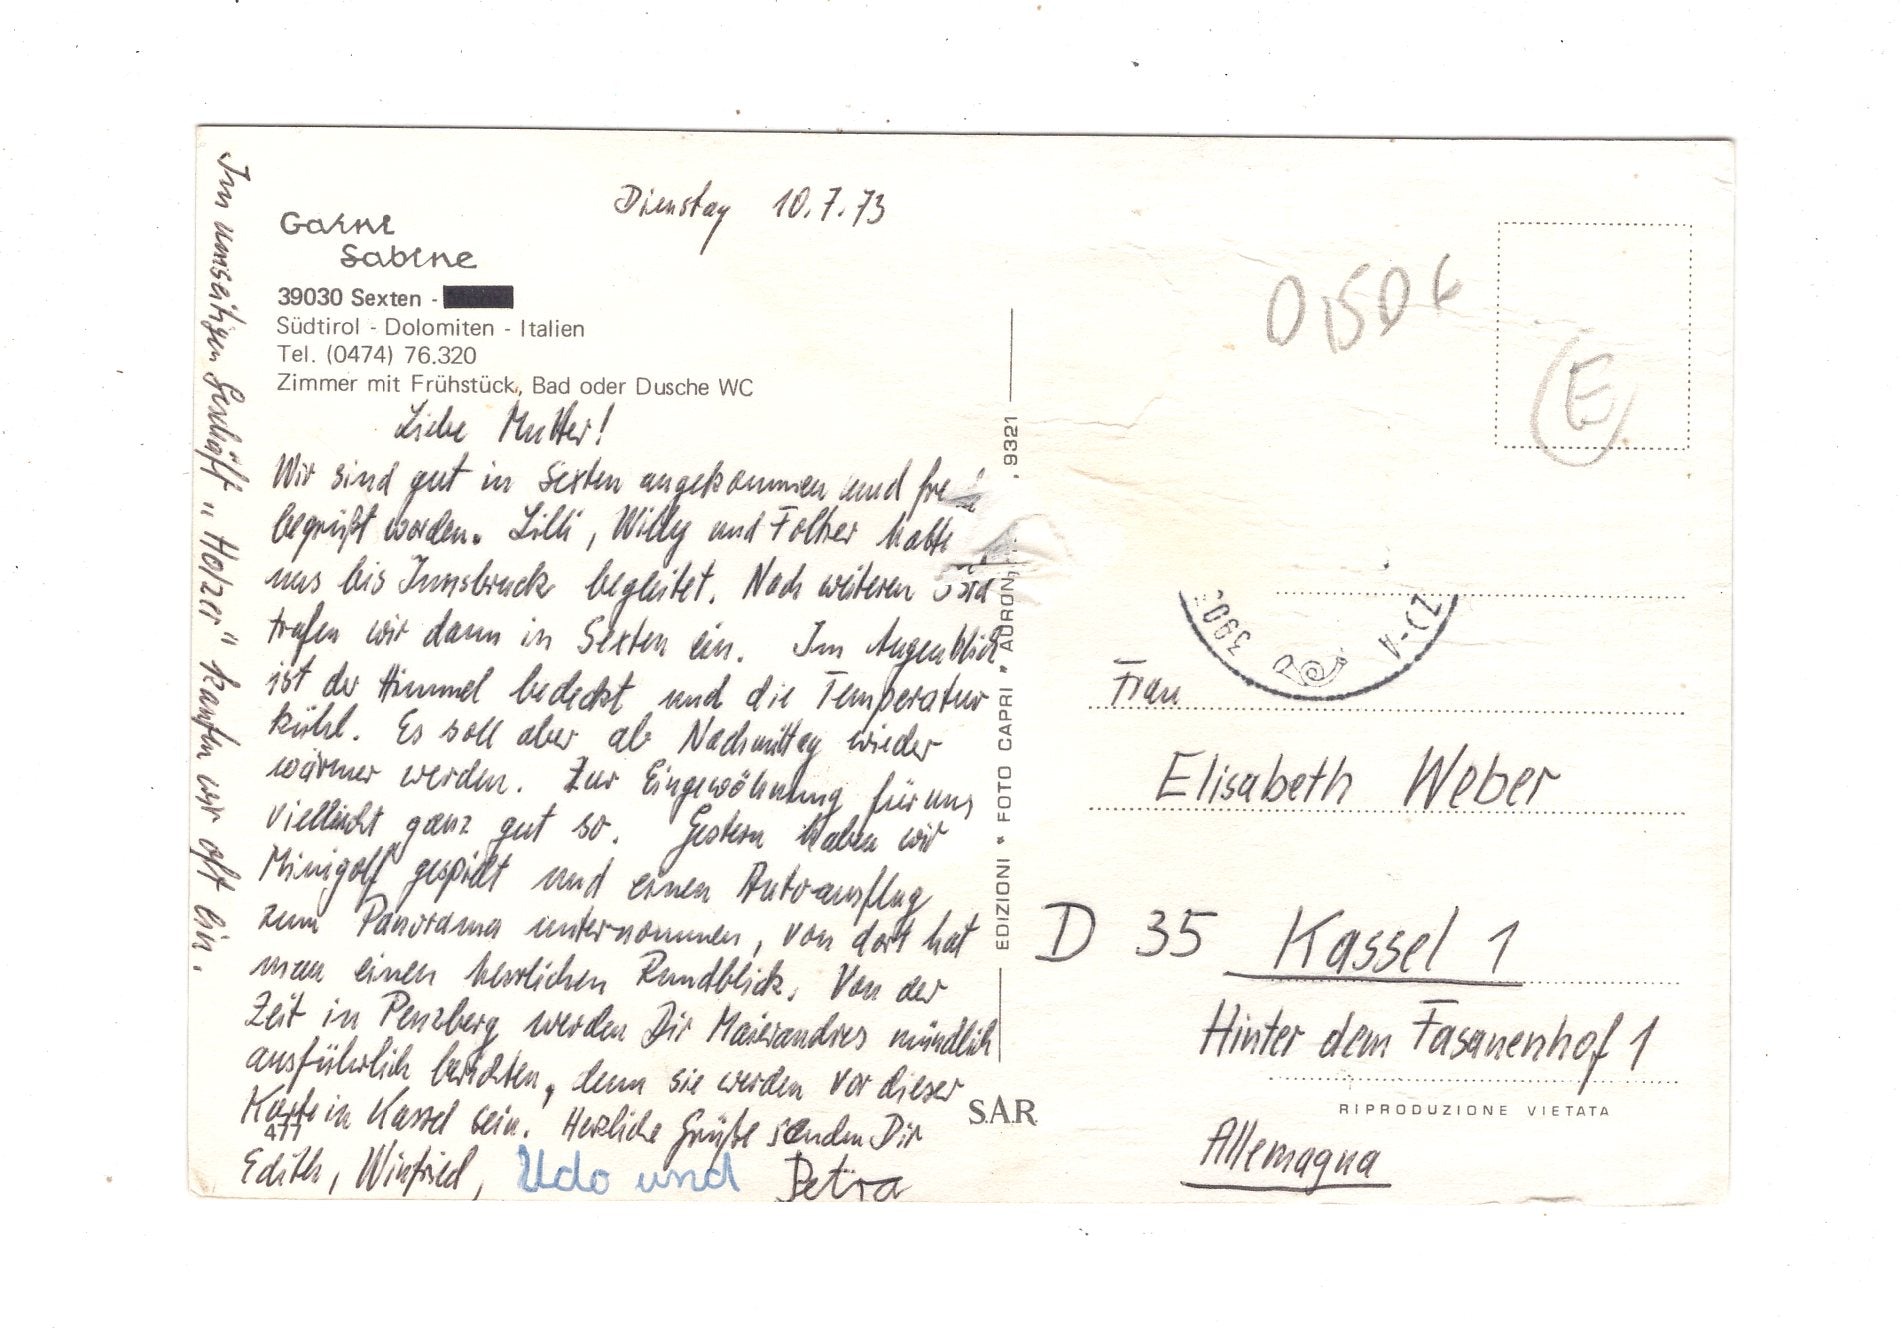 Im umseitigen Geschäft „Holzer" kaufen wir oft ein.
Dienstag 10.7.73
Garni
Sabine
39030 Sexten -
Südtirol - Dolomiten - Italien
Tel. (0474) 76.320
Zimmer mit Frühstück, Bad oder Dusche WC
Liebe Mutter!
Wir sind gut in Sexten angekommen und
begrüßt worden. Lilli, Willy und Folker
uns bis Innsbruck begleitet. Nach weiteren
trafen wir dann in Sexten ein. Im Augenblick
ist der Himmel bedeckt und die Temperatur
kühl. Es soll aber ab Nachmittag wieder
wärmer werden. Zur Eingewöhnung für uns
vielleicht ganz gut so. Gestern haben wir
Minigolf gespielt und einen Autoausflug
zum Panorama unternommen, von dort hat
man einen herrlichen Rundblick. Von der
Zeit in Penzberg werden Dir Maierandres mündlich
ausführlich berichten, denn sie werden vor dieser
Karte in Kassel sein. Herzliche Grüße senden Dir
477
Edith, Winfried, Udo und Petra
EDIZIONI * FOTO CAPRI * AURON
9321
S.A.R.
E
390
Frau
Elisabeth Weber
D 35 Kassel 1
Hinter dem Fasanenhof 1
RIPRODUZIONE VIETATA
Allemagna